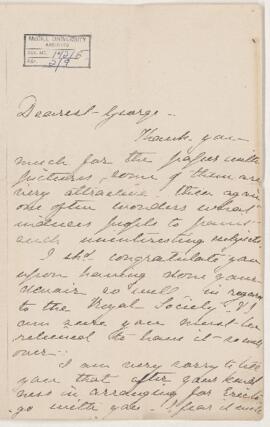 McGILL UNIVERSITY
ARCHIVES
ACC. NO.
REF.
Dearest George -
Thank you
much for the paper with
pictures, some of them are
very attractive - then again
one often wonders what
induces people to paint
such uninteresting subjects
I shd. congratulate you
upon having done your
so well in regard
to the Royal Society. I
am sure you must be
relieved to have it so well
over -
I am very sorry to tell
you that after your kind-
ness in arranging for Eric to
go with you I fear it